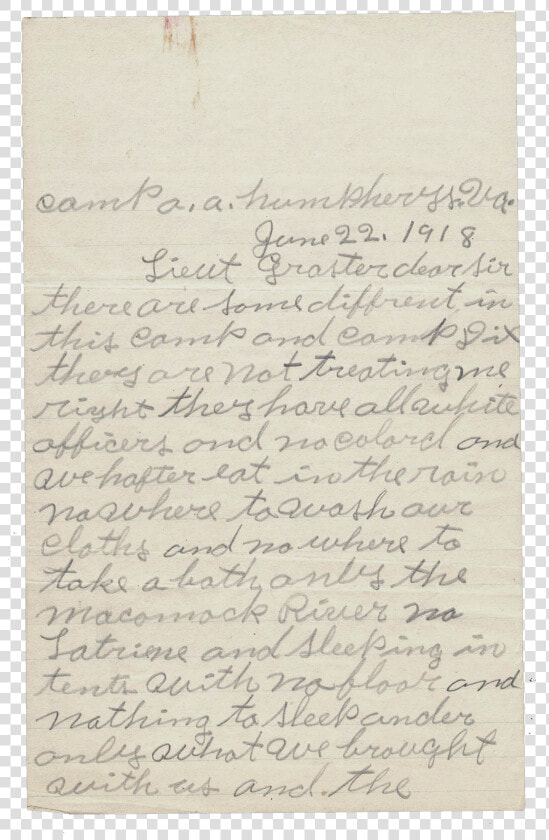 camp a. a. humpherys. Va.
June 22. 1918
Lieut Graster dear sir
there are some diffrent in
this camp and camp Dix
theys are not treating me
right they have all white
officers and no colord and
we hafter eat in the rain
no where to wash our
cloths and no where to
take a bath onlys the
macomack River no
Latriene and sleeping in
tents with no floor and
nothing to sleep ander
onlys what we brought
with us and. the